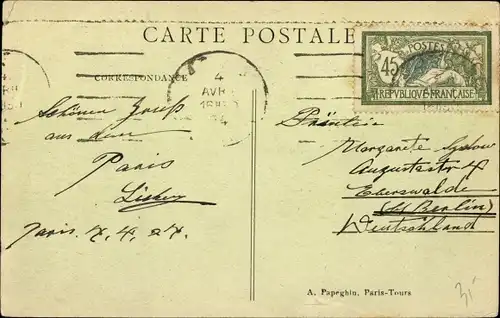 CARTE POSTALE
CORRESPONDANCE
4
AVR
24
POSTES
45
REPUBLIQUE FRANÇAISE
Schönen Gruß
aus dem
Paris
Paris. 7. 4. 24.
Fräulein
Margarete
Augustastr 4
Eberswalde
(bei Berlin)
Deutschland
A. Papeghin, Paris-Tours